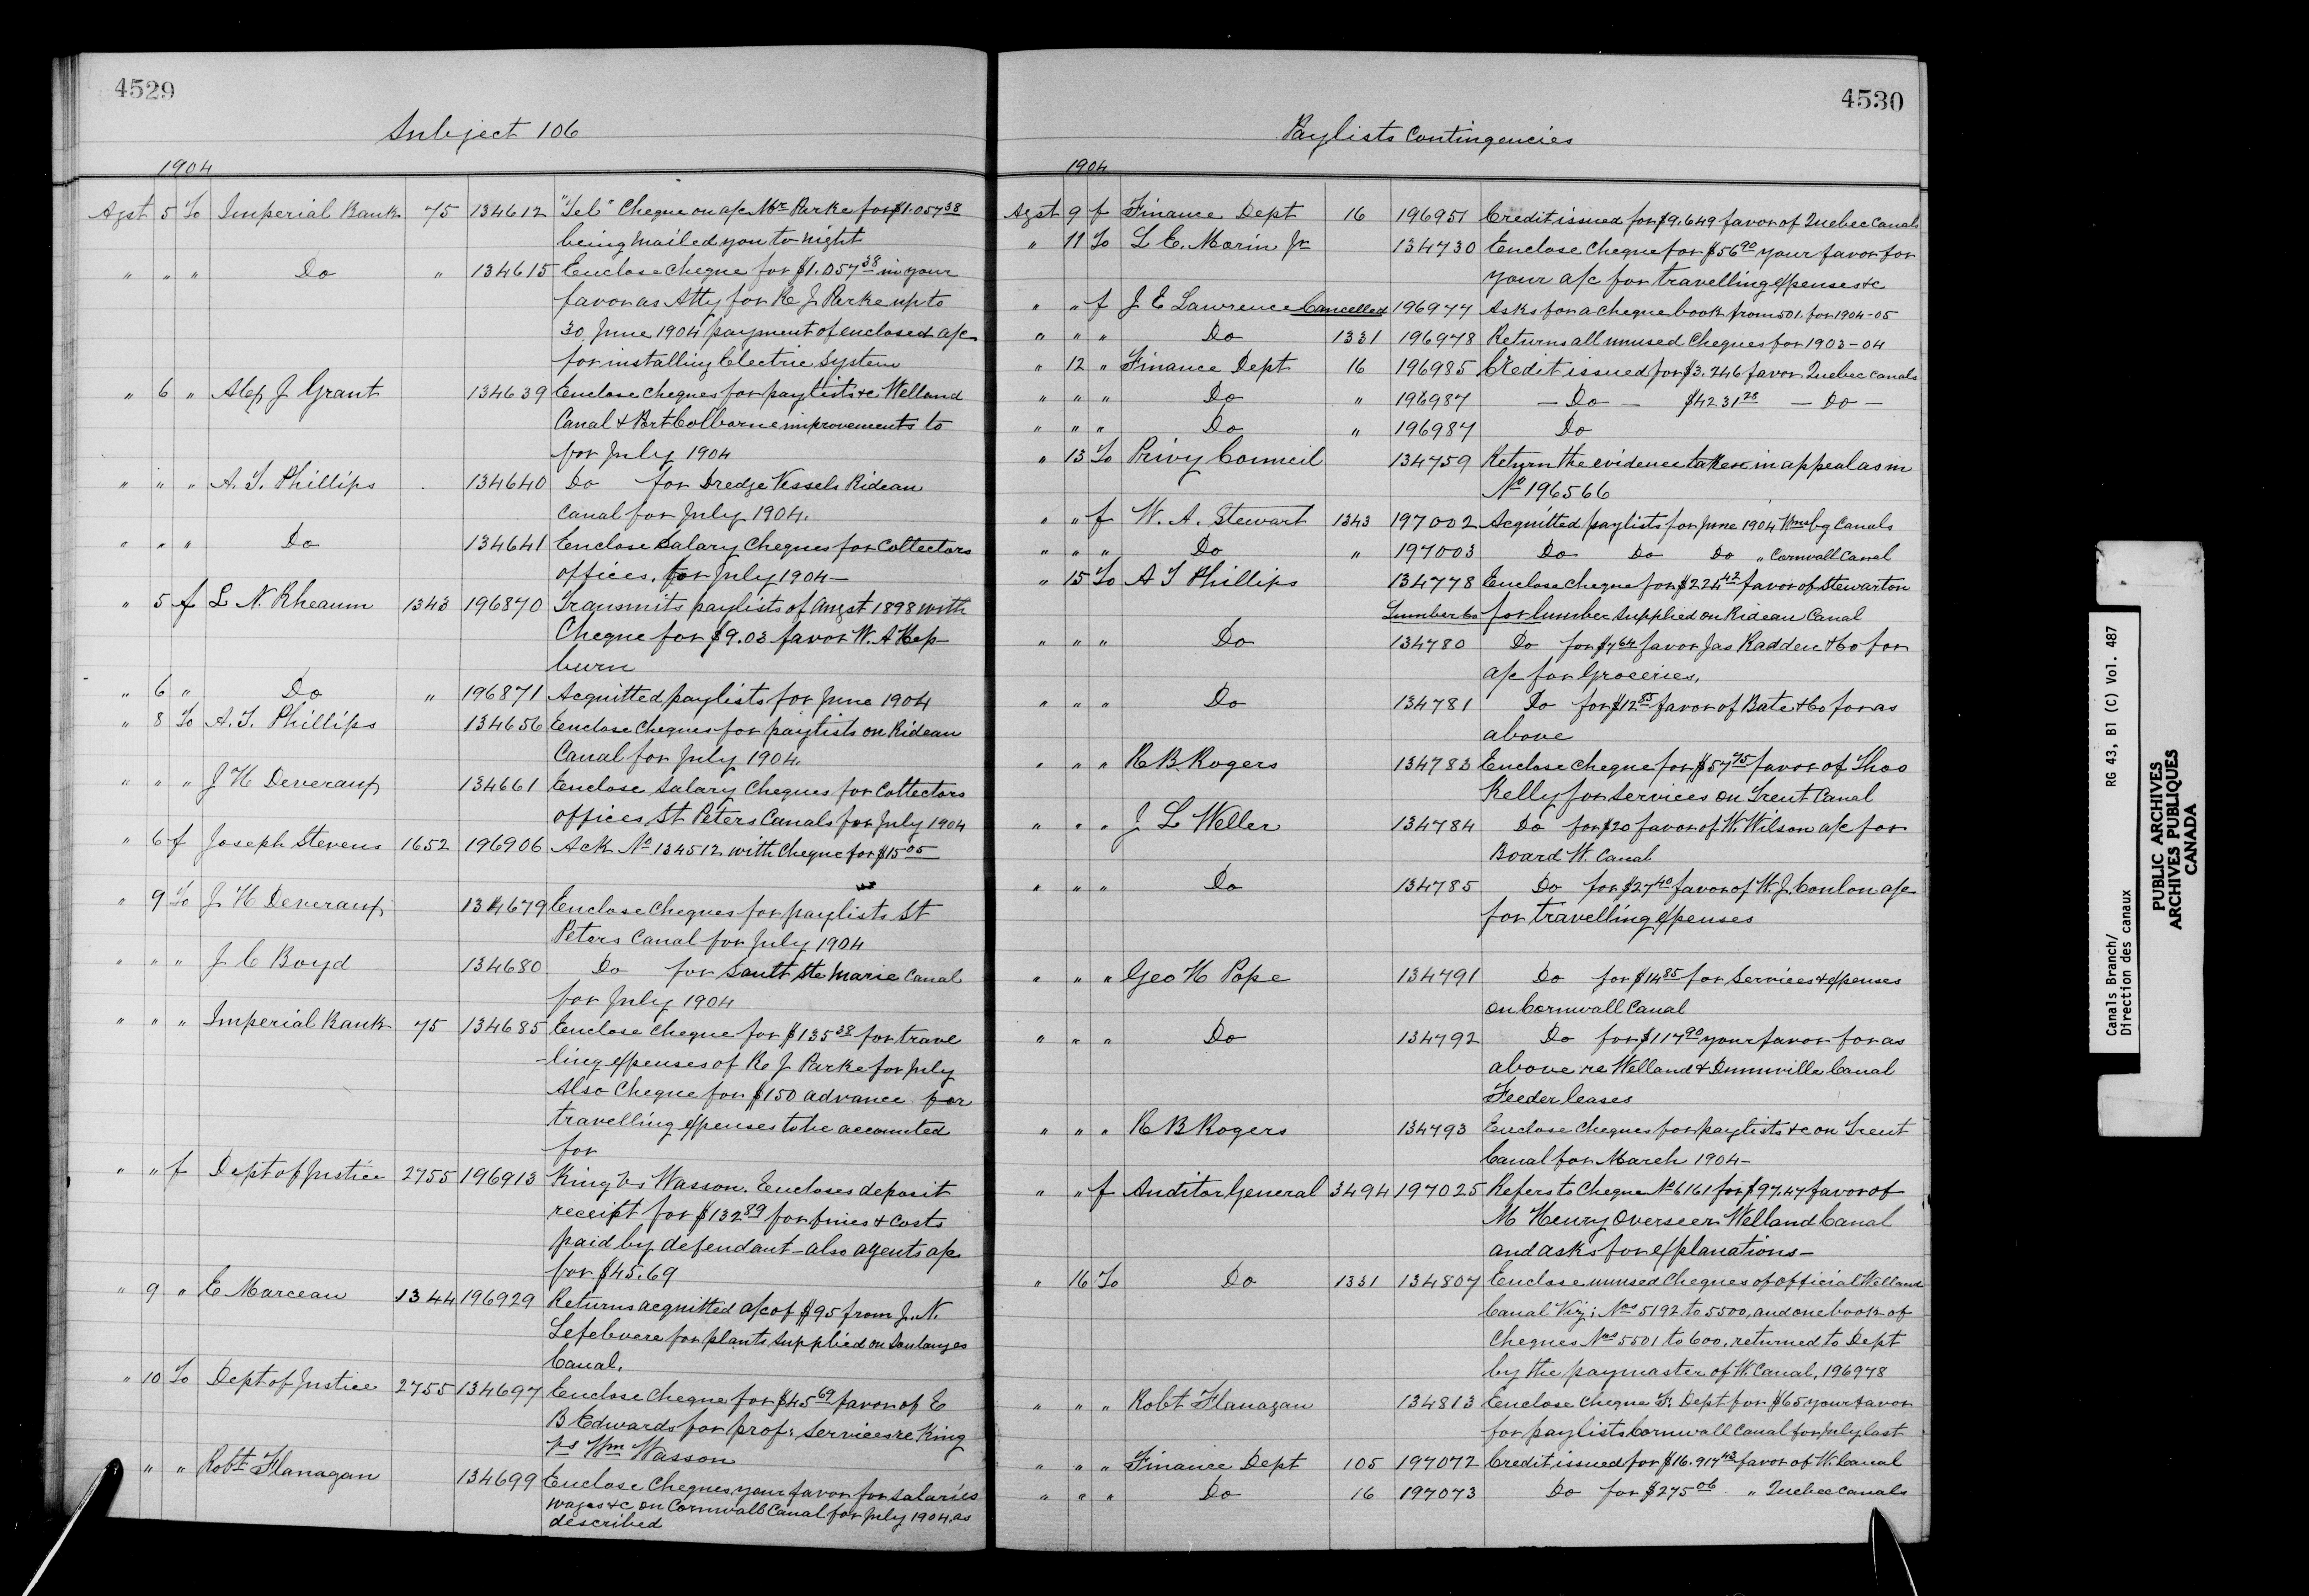 4529
Subject 106
1904
Agst 5 To Imperial Bank 75 134612 "Tel" Cheque on a/c Mr. Parke for $1.057 38
being mailed you to night
" " " Do " 134615 Enclose cheque for $1.057 38 in your
favor as Atty for R J Parke up to
30 June 1904 payment of enclosed a/c
for installing Electric System
" 6 " Alex J Grant 134639 Enclose cheques for paylists &c Welland
Canal & Port Colborne improvements to
for July 1904
" " " A. T. Phillips 134640 Do for Dredge Vessels Rideau
Canal for July 1904.
" " " Do 134641 Enclose Salary Cheques for Collectors
offices, for July 1904—
" 5 f L N. Rheaum 1343 196870 Transmits paylists of Augst 1898 with
Cheque for $9.03 favor W. A Hep
burn
" 6 " Do " 196871 Acquitted paylists for June 1904
" 8 To A. T. Phillips 134656 Enclose Cheques for paylists on Rideau
Canal for July 1904.
" " " J H Deveraux 134661 Enclose Salary Cheques for Collectors
offices St Peters Canals for July 1904
" 6 f Joseph Stevens 1652 196906 Ack No 134512 with Cheque for $15 05
" 9 To J H Deveraux 134679 Enclose Cheques for paylists St
Peters Canal for July 1904
" " " J C Boyd 134680 Do for Sault Ste Marie Canal
for July 1904
" " " Imperial Bank 75 134685 Enclose cheque for $135 38 for trave
-ling expenses of R J Parke for July
Also Cheque for $150 advance for
travelling expenses to be accounted
for
" " f Dept of Justice 2755 196913 King vs Wasson. Encloses deposit
receipt for $132 89 for fines & costs
paid by defendant – also agents a/c
for $45.69
" 9 " E Marceau 1344 196929 Returns acquitted a/c of $95 from J. N.
Lefebvere for plants supplied on Soulanges
Canal.
" 10 To Dept of Justice 2755 134697 Enclose cheque for $45 69 favor of E
B Edwards for prof: services re King
vs Wm Wasson
" " Robt Flanagan 134699 Enclose Cheques your favor for salaries
wages &c on Cornwall Canal for July 1904. as
described
4530
Paylists Contingencies
1904
Agst 9 f Finance Dept 16 196951 Credit issued for $9.649 favor of Quebec Canals
" 11 To L E. Morin Jr 134730 Enclose Cheque for $56 90 your favor for
your a/c for travelling expenses &c
" " f J E Lawrence Cancelled 196977 Asks for a cheque book from 501. for 1904-05
" " " Do 1331 196978 Returns all unused Cheques for 1903-04
" 12 " Finance Dept 16 196985 Credit issued for $3.246 favor Quebec canals
" " " Do " 196987 — Do — $4231 28 — Do —
" " " Do " 196987 Do
" 13 To Privy Council 134759 Return the evidence taken in appeal as in
No 196566
" " f W. A. Stewart 1343 197002 Acquitted paylists for June 1904 Wmsbg Canals
" " " Do " 197003 Do Do Do " Cornwall Canal
" 15 To A T Phillips 134778 Enclose cheque for $225 42 favor of Stewarton
Lumber Co for lumber supplied on Rideau Canal
" " " Do 134780 Do for $7 64 favor Jas Radden & Co for
a/c for Groceries.
" " " Do 134781 Do for $12 85 favor of Bate & Co for as
above
" " " R B Rogers 134783 Enclose cheque for $57 75 favor of Thos
Kelly for services on Trent Canal
" " " J L Weller 134784 Do for $20 favor of W. Wilson a/c for
Board W. Canal
" " " Do 134785 Do for $27 40 favor of W. J. Conlon a/c
for travelling expenses
" " " Geo H Pope 134791 Do for $14 85 for Services & expenses
on Cornwall Canal
" " " Do 134792 Do for $117 90 your favor for as
above re Welland & Dunnville Canal
Feeder leases
" " " R B Rogers 134793 Enclose Cheques for paylists &c on Trent
Canal for March 1904—
" " f Auditor General 3494 197025 Refers to Cheque No 6161 for $97.47 favor of
M Henry Overseer Welland Canal
and asks for explanations—
" 16 To Do 1331 134807 Enclose unused Cheques of official Welland
Canal Viz: Nos 5192 to 5500, and one book of
Cheques Nos 5501 to 600, returned to Dept
by the paymaster of W. Canal, 196978
" " " Robt Flanagan 134813 Enclose cheque F. Dept for $65 your favor
for paylists Cornwall Canal for July last
" " " Finance Dept 105 197072 Credit issued for $16.917 43 favor of W. Canal
" " " Do 16 197073 Do for $275 06 " Quebec Canals
Canals Branch/ RG 43, B1 (C) Vol. 487
Direction des canaux
PUBLIC ARCHIVES
ARCHIVES PUBLIQUES
CANADA